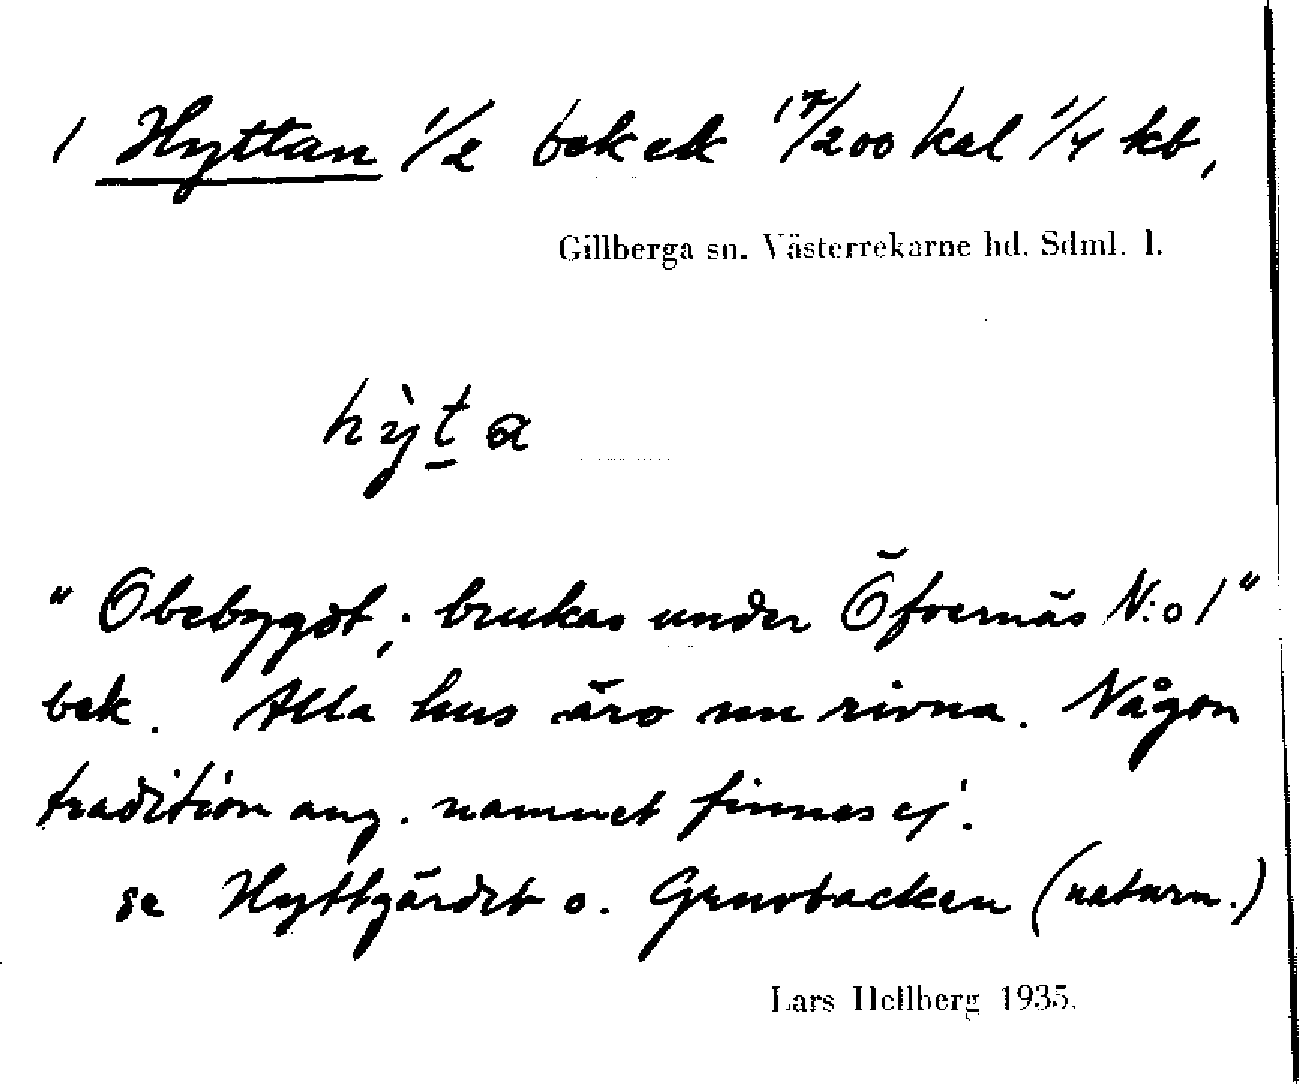 1 Hyttan 1/2 bek ek 17/200 kal 1/4 kb,
Gillberga sn. Västerrekarne hd. Sdml. l.
hỳta
"Obebygdt; brukas under Öfvernäs N:o 1"
bek. Alla hus äro nu rivna. Någon
tradition ang. namnet finnes ej.
se Hyttgärdet o. Gruvbacken (naturn.)
Lars Hellberg 1935.